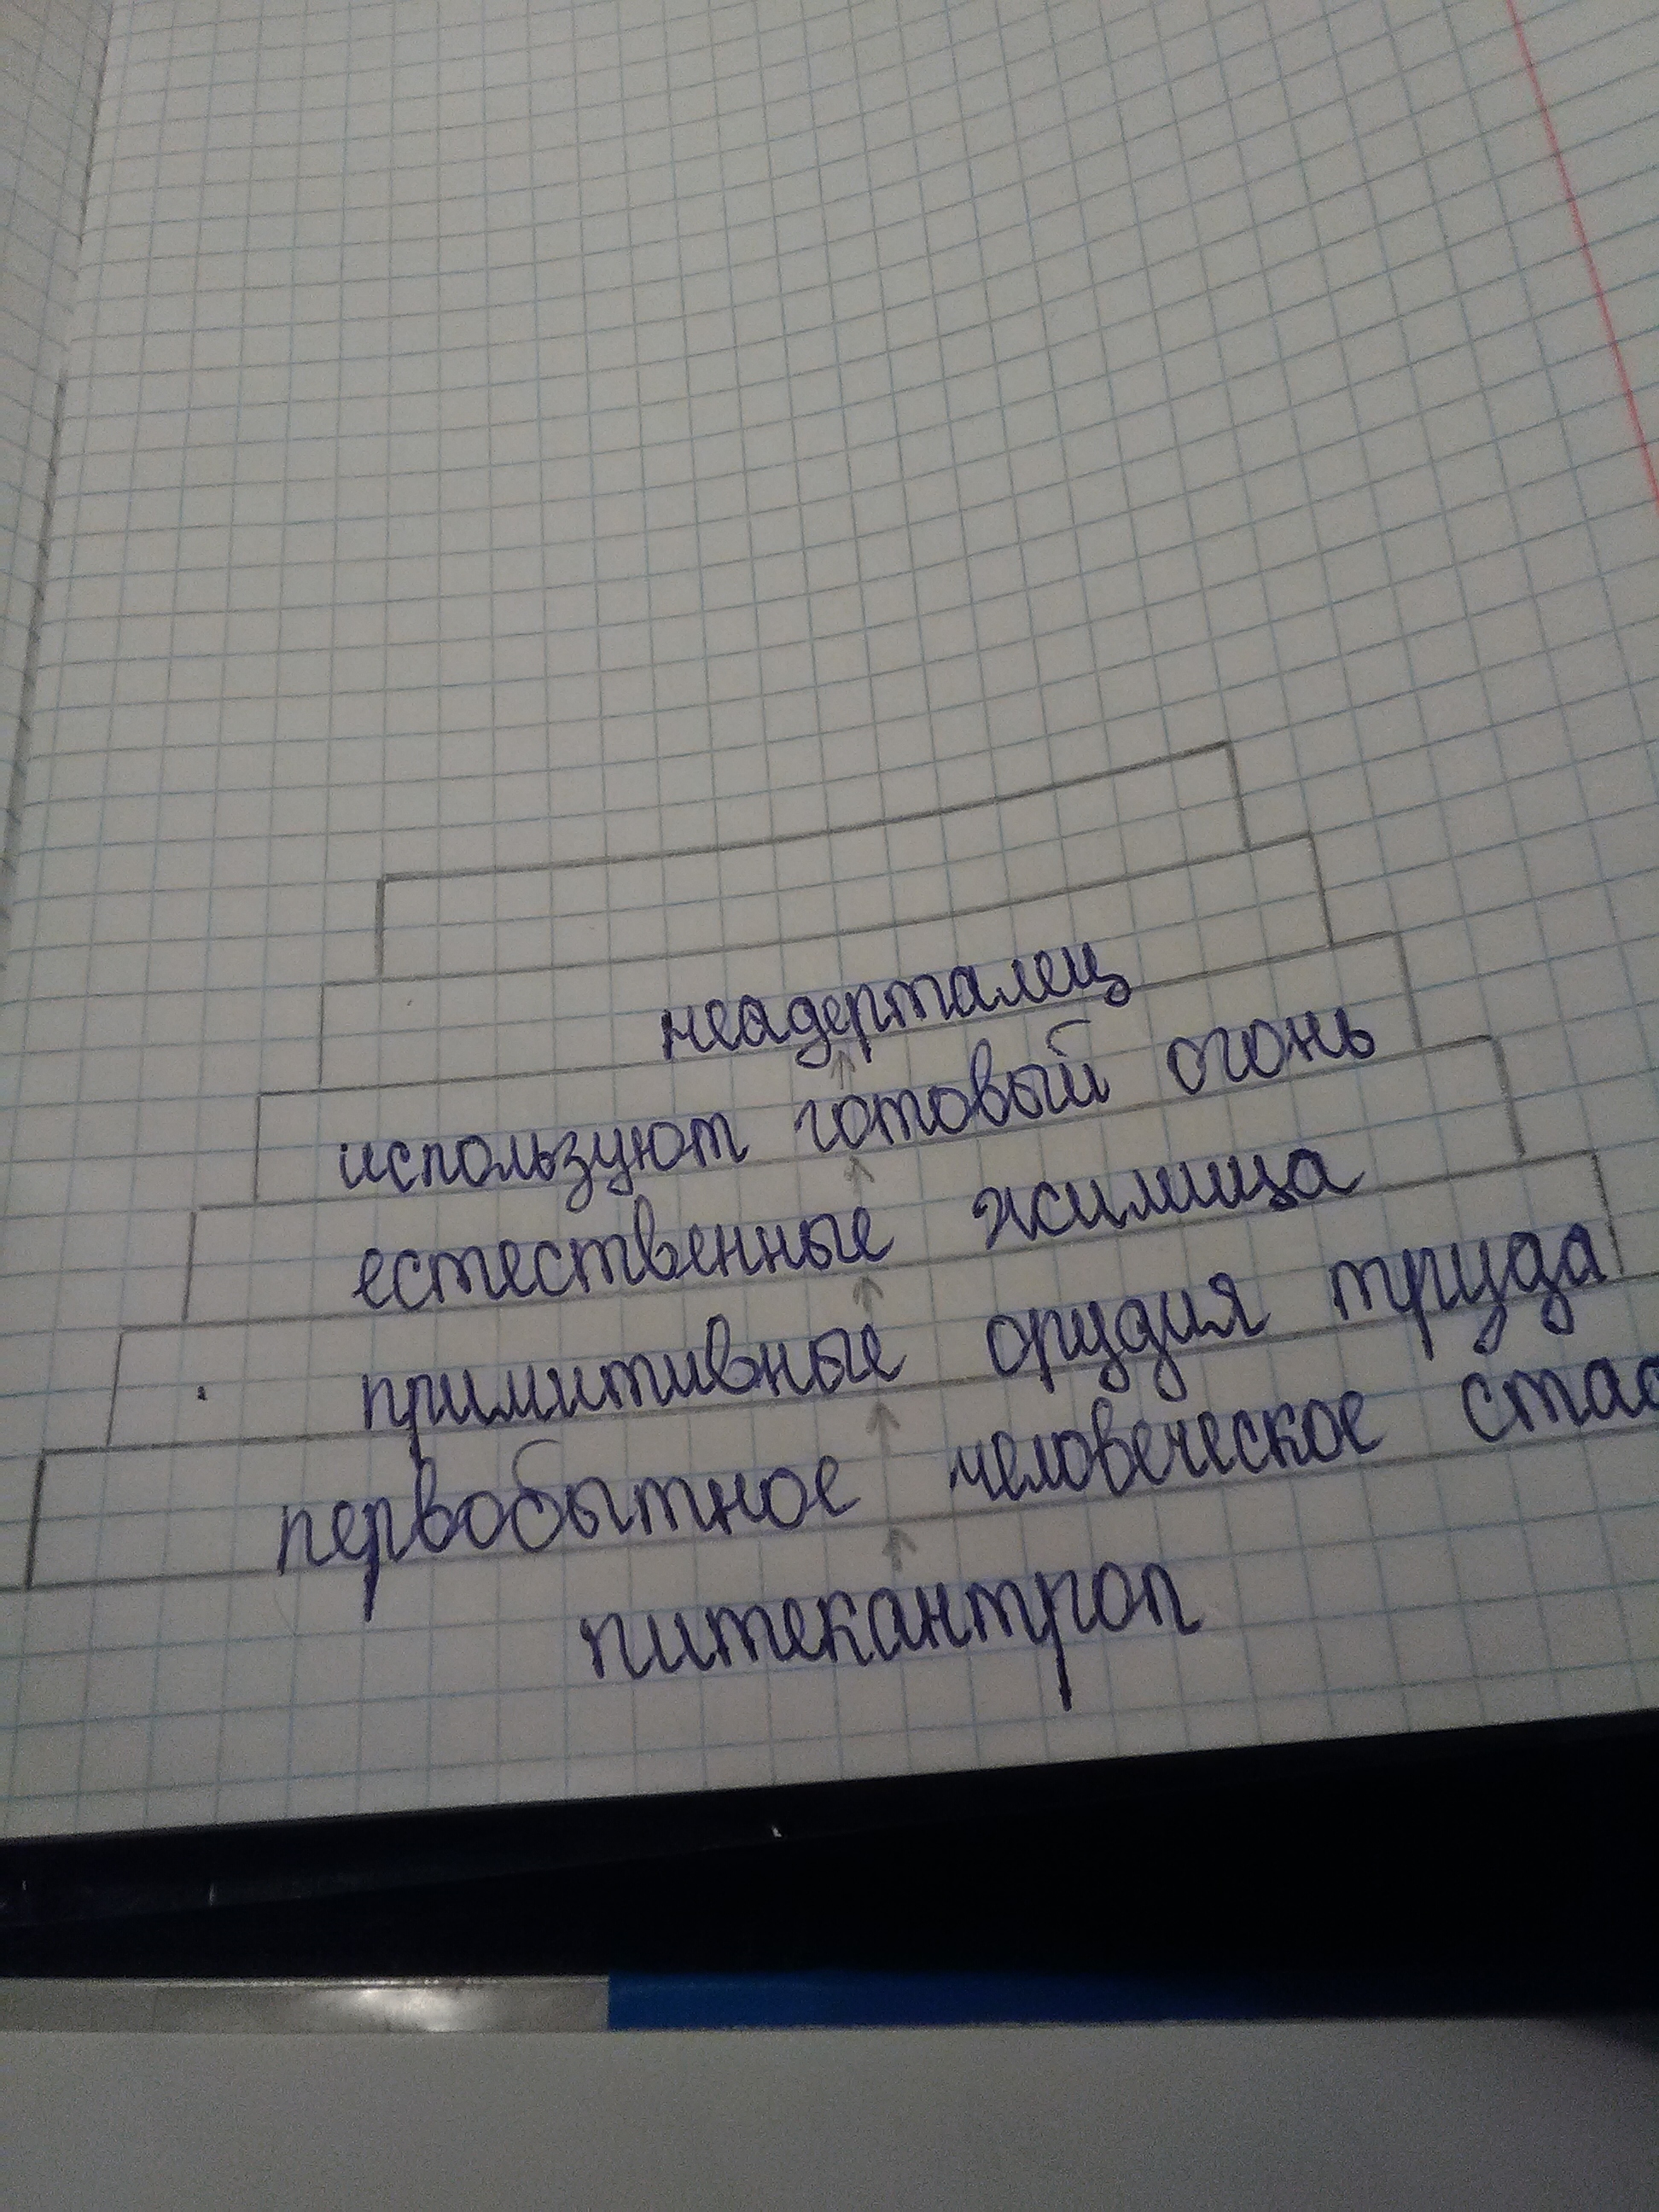 неадерталец
используют готовый огонь
естественные жилища
примитивные орудия труда
первобытное человеческое
питекантроп